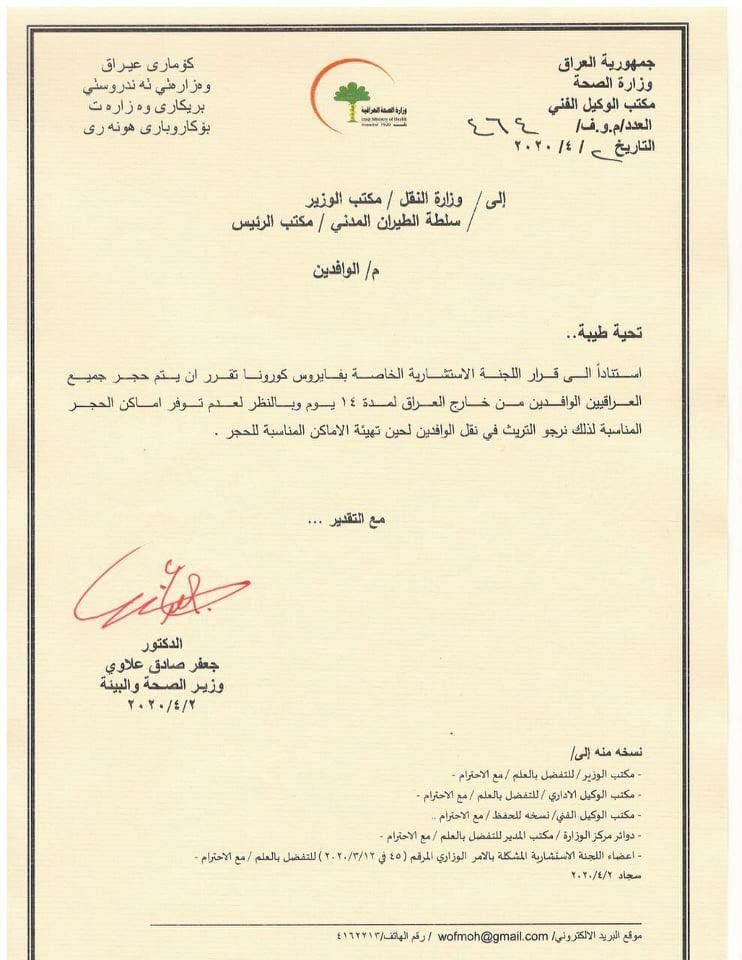 جمهورية العراق
وزارة الصحة
مكتب الوكيل الفني
العدد/م.و.ف/ ٤٦٤
التاريخ ٢/ ٤/ ٢٠٢٠
كۆماری عیراق
وەزارەتی تەندروستی
بریکاری وەزارەت
بۆکاروباری هونەری
وزارة الصحة العراقية
Iraqi Ministry of Health
Founded 1920
إلى/ وزارة النقل / مكتب الوزير
/ سلطة الطيران المدني / مكتب الرئيس
م/ الوافدين
تحية طيبة..
استناداً الى قرار اللجنة الاستشارية الخاصة بفايروس كورونا تقرر ان يتم حجر جميع
العراقيين الوافدين من خارج العراق لمدة ١٤ يوم وبالنظر لعدم توفر اماكن الحجر
المناسبة لذلك نرجو التريث في نقل الوافدين لحين تهيئة الاماكن المناسبة للحجر .
مع التقدير ...
الدكتور
جعفر صادق علاوي
وزير الصحة والبيئة
٢٠٢٠/٤/٢
نسخه منه إلى/
- مكتب الوزير/ للتفضل بالعلم / مع الاحترام -
- مكتب الوكيل الاداري / للتفضل بالعلم / مع الاحترام -
- مكتب الوكيل الفني/ نسخه للحفظ / مع الاحترام ..
- دوائر مركز الوزارة / مكتب المدير للتفضل بالعلم / مع الاحترام -
- اعضاء اللجنة الاستشارية المشكلة بالامر الوزاري المرقم ( ٤٥ في ٢٠٢٠/٣/١٢ ) للتفضل بالعلم / مع الاحترام -
سجاد ٢٠٢٠/٤/٢
موقع البريد الالكتروني/ wofmoh@gmail.com / رقم الهاتف/٤١٦٢٢١٣